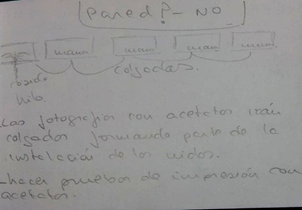 Pared? - NO
colgadas.
Las fotografías con acetatos irán
colgadas formando parte de la
instalación de los nidos.
- hacer pruebas de impresión con
acetatos.